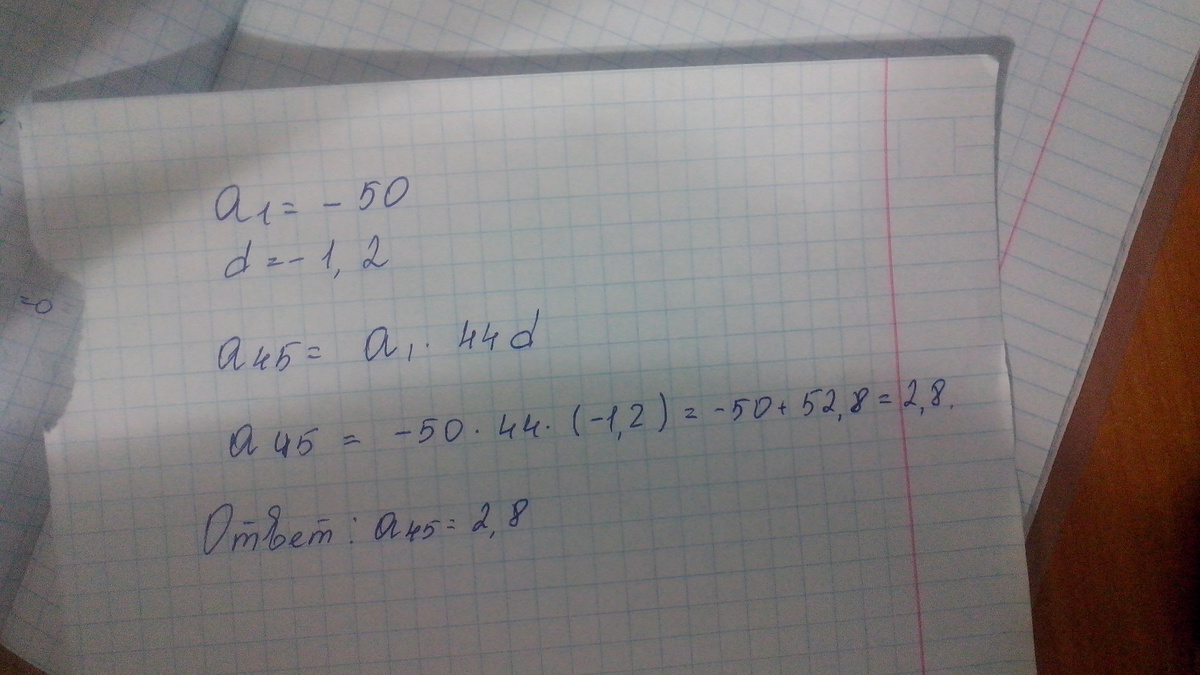 a₁ = - 50
d = - 1, 2
=0
a₄₅ = a₁ · 44 d
a 45 = -50 · 44 · (-1,2) = -50 + 52,8 = 2,8.
Ответ: a₄₅ = 2,8